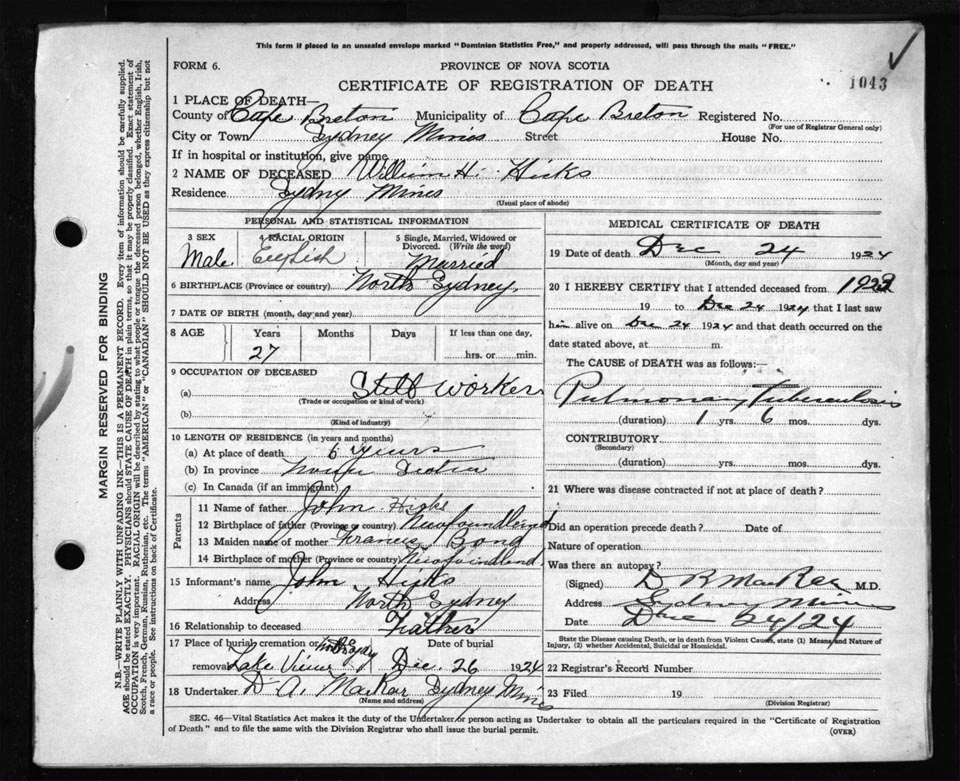 This form if placed in an unsealed envelope marked "Dominion Statistics Free," and properly addressed, will pass through the mails "FREE."
FORM 6.
PROVINCE OF NOVA SCOTIA
CERTIFICATE OF REGISTRATION OF DEATH
1043
1 PLACE OF DEATH—
County of Cape Breton Municipality of Cape Breton Registered No.
(For use of Registrar General only)
City or Town Sydney Mines Street House No.
If in hospital or institution, give name
2 NAME OF DECEASED William H. Hicks
Residence Sydney Mines
(Usual place of abode)
PERSONAL AND STATISTICAL INFORMATION
3 SEX 4 RACIAL ORIGIN 5 Single, Married, Widowed or Divorced. (Write the word)
Male English Married
6 BIRTHPLACE (Province or country) North Sydney
7 DATE OF BIRTH (month, day and year)
8 AGE Years Months Days If less than one day,
27 hrs. or min.
9 OCCUPATION OF DECEASED
(a) Steel worker
(Trade or occupation or kind of work)
(b)
(Kind of industry)
10 LENGTH OF RESIDENCE (in years and months)
(a) At place of death 6 years
(b) In province Nova Scotia
(c) In Canada (if an immigrant)
Parents
11 Name of father John Hicks
12 Birthplace of father (Province or country) Newfoundland
13 Maiden name of mother Frances Bond
14 Birthplace of mother (Province or country) Newfoundland
15 Informant's name John Hicks
Address North Sydney
16 Relationship to deceased Father
17 Place of burial, cremation or removal Lake View Date of burial Dec. 26 1924
18 Undertaker D. A. MacRae Sydney Mines
(Name and address)
MEDICAL CERTIFICATE OF DEATH
19 Date of death Dec 24 1924
(Month, day and year)
20 I HEREBY CERTIFY that I attended deceased from
19 to Dec 24 1924 that I last saw
him alive on Dec 24 1924 and that death occurred on the
date stated above, at m.
The CAUSE of DEATH was as follows:—
Pulmonary Tuberculosis
(duration) 1 yrs. 6 mos. dys.
CONTRIBUTORY
(Secondary)
(duration) yrs. mos. dys.
21 Where was disease contracted if not at place of death?
Did an operation precede death? Date of
Nature of operation
Was there an autopsy?
(Signed) D R MacRae M.D.
Address Sydney Mines
Date Dec 24/24
State the Disease causing Death, or in death from Violent Causes, state (1) Means and Nature of Injury, (2) whether Accidental, Suicidal or Homicidal.
22 Registrar's Record Number
23 Filed 19
(Division Registrar)
SEC. 46—Vital Statistics Act makes it the duty of the Undertaker or person acting as Undertaker to obtain all the particulars required in the "Certificate of Registration
of Death" and to file the same with the Division Registrar who shall issue the burial permit.
(OVER)
MARGIN RESERVED FOR BINDING
N.B.—WRITE PLAINLY WITH UNFADING INK—THIS IS A PERMANENT RECORD. Every item of information should be carefully supplied.
AGE should be stated EXACTLY. PHYSICIANS should STATE CAUSE OF DEATH in plain terms, so that it may be properly classified. Exact statement of
OCCUPATION is very important. RACIAL ORIGIN will be described by stating to what people or tongue the deceased person belonged, whether English, Irish,
Scotch, French, German, Russian, Ruthenian, etc. The terms "AMERICAN" or "CANADIAN" SHOULD NOT BE USED as they express citizenship but not
a race or people. See instructions on back of Certificate.